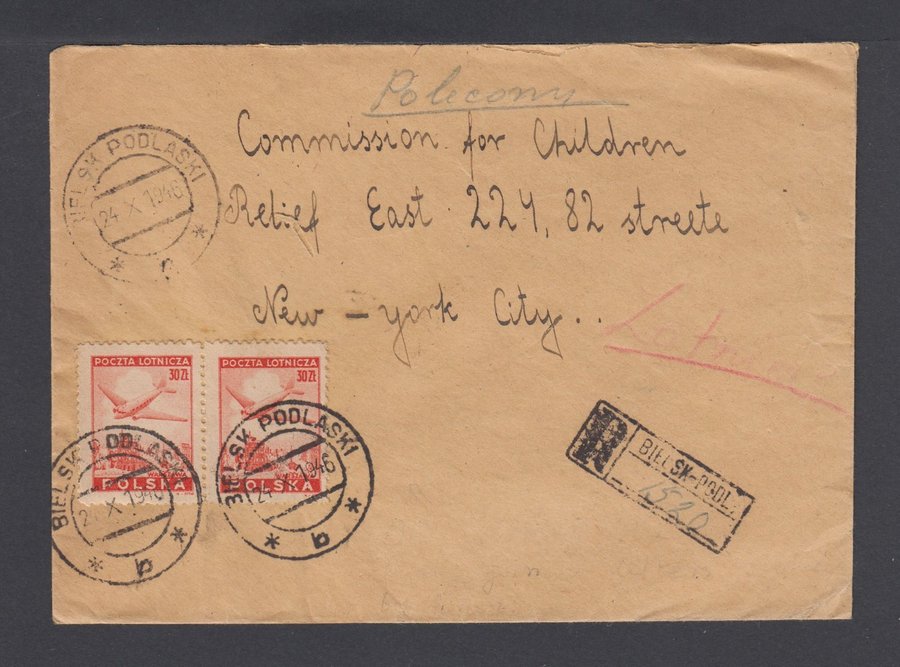 Polecony
Commission for Children
Relief East 224, 82 streete
New-york City..
BIELSK PODLASKI
24 X 1946
POCZTA LOTNICZA
30 ZŁ
POLSKA
POCZTA LOTNICZA
30 ZŁ
POLSKA
BIELSK PODLASKI
24 X 1946
b
BIELSK PODLASKI
24 X 1946
b
R
BIELSK-PODL.
1520